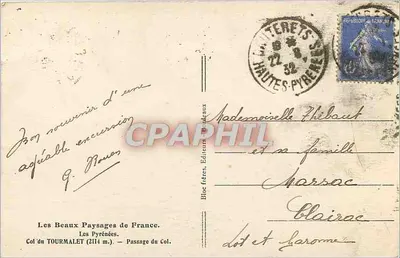 CAUTERETS
22 -8
32
HAUTES-PYRÉNÉES
Bon souvenir d'une
agréable excursion
CPAPHIL
Mademoiselle Thébaut
et sa famille
Marsac
Clairac
Lot et Garonne
Bloc frères, Editeurs
Les Beaux Paysages de France.
Les Pyrénées.
Col du TOURMALET (2114 m.). — Passage du Col.